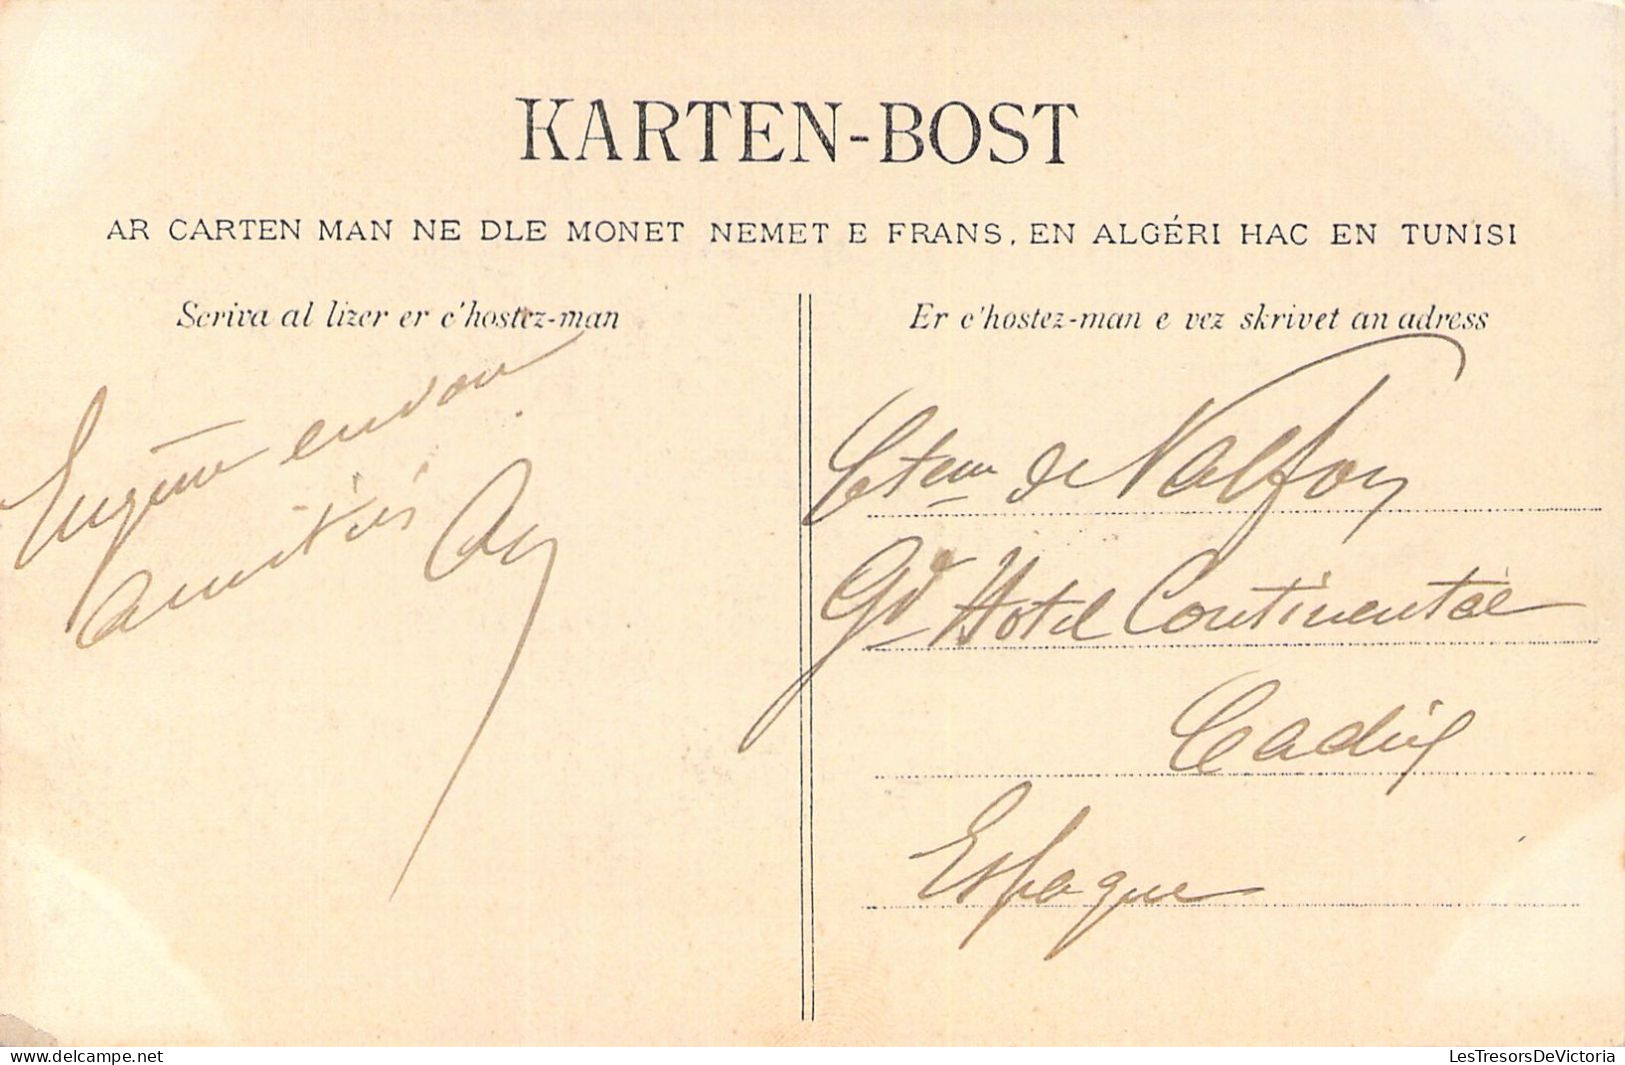 KARTEN-BOST
AR CARTEN MAN NE DLE MONET NEMET E FRANS, EN ALGÉRI HAC EN TUNISI
Scriva al lizer er c'hostez-man
Er c'hostez-man e vez skrivet an adress
amitiés
de Valfoy
Gd Hotel Continental
Cadix
Espagne
delcampe.net
LesTresorsDeVictoria